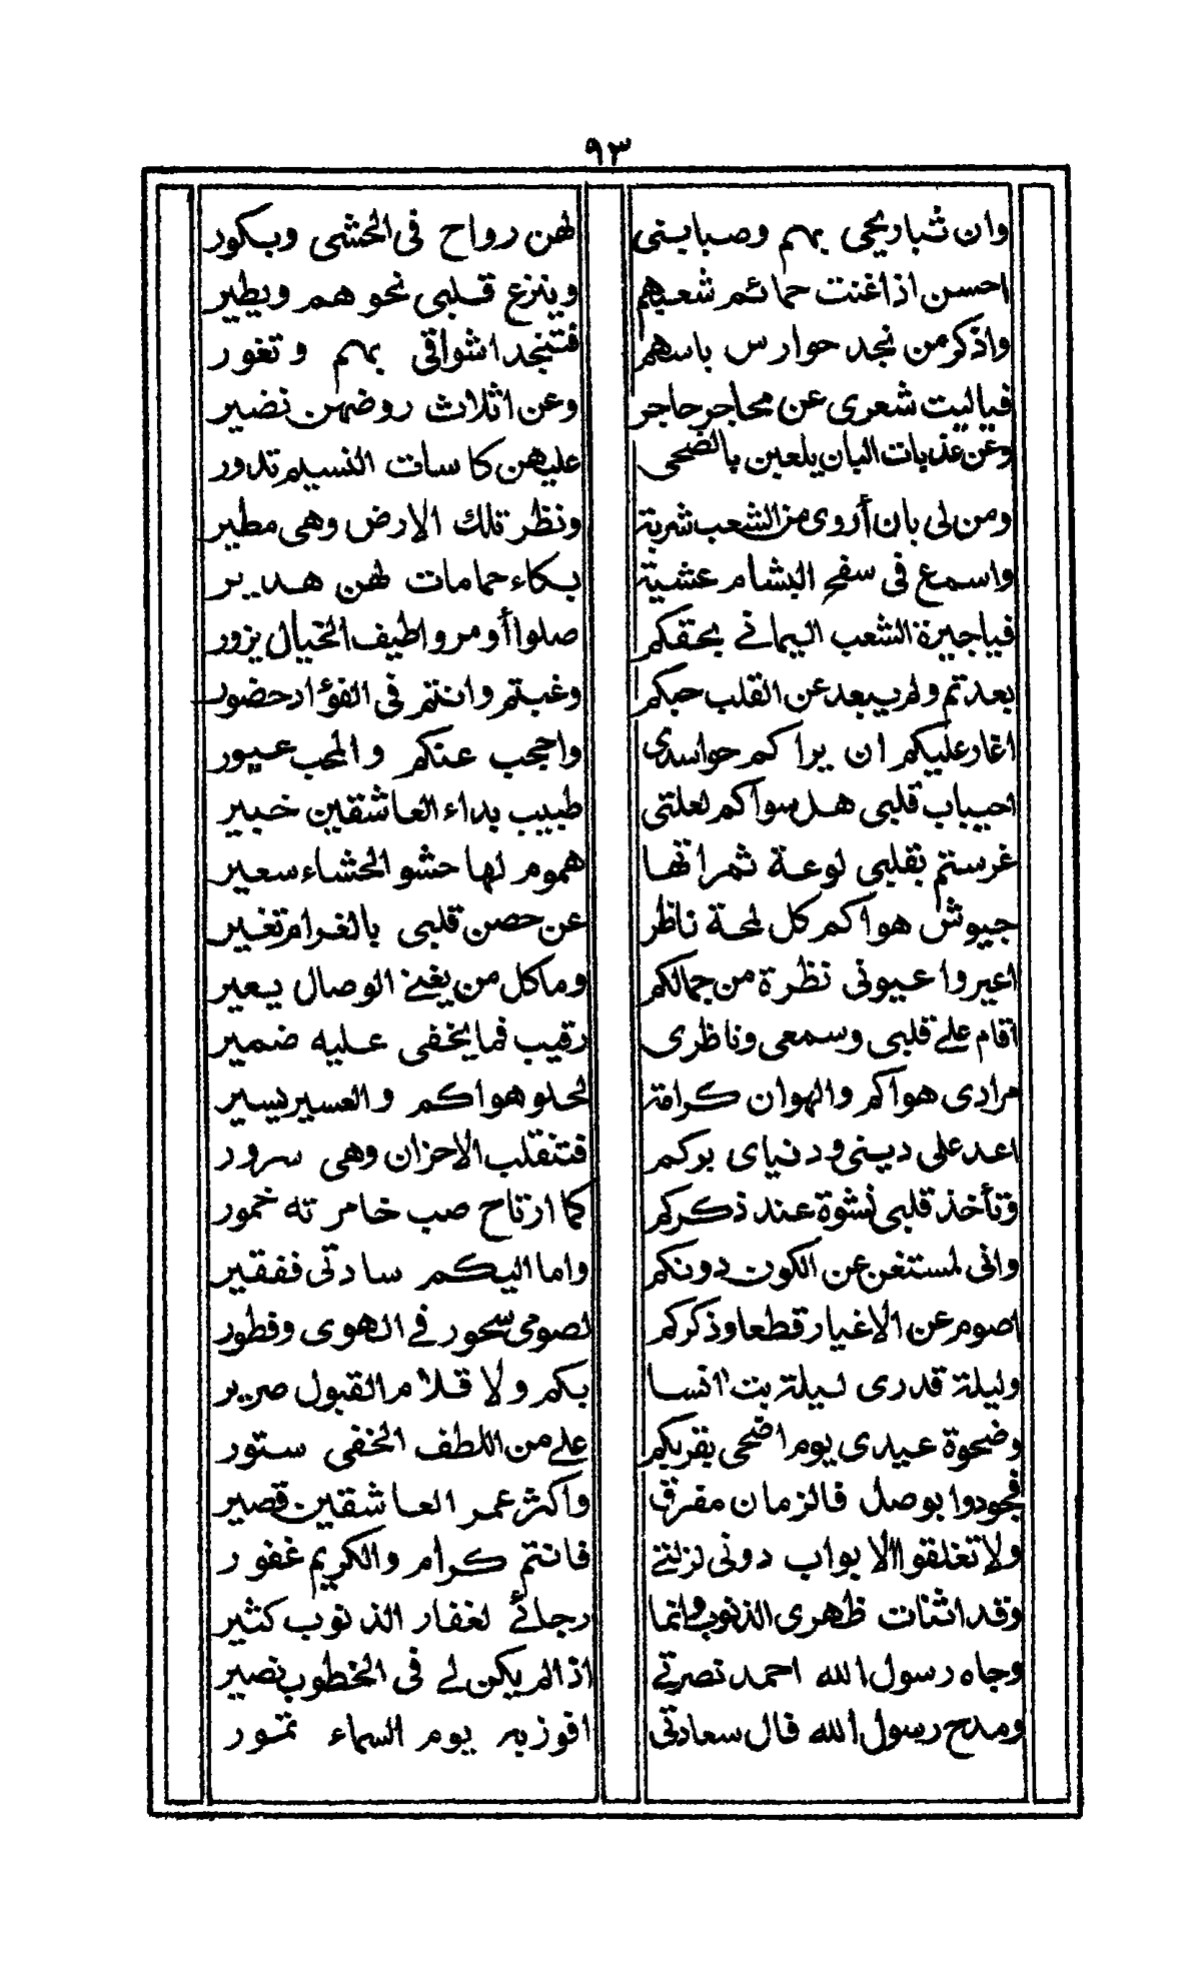 ٩٣
وان ثباريحى بهم وصبابنى لهن رواح فى الحشى وبكور
احسن اذا غنت حمائم شعبهم وينزع قلبى نحوهم ويطير
واذكر من نجد حوارس باسهم فتنجد اشواقى بهم وتغور
فياليت شعرى عن محاجر حاجر وعن اثلاث روضهن نضير
وعن عذبات البان يلعبن بالضحى عليهن كاسات النسيم تدور
ومن لى بان أروى من الشعب شربة ونظر تلك الارض وهى مطير
واسمع فى سفح البشام عشية بكاء حمامات لهن هدير
فياجيرة الشعب اليمانے بحقكم صلوا أو مروا طيف الخيال يزور
بعدتم ولم يبعد عن القلب حبكم وغبتم وانتم فى الفؤاد حضور
اغار عليكم ان يراكم حواسدى واحجب عنكم والمحب عيور
احيباب قلبى هل سواكم لعلتى طبيب بداء العاشقين خبير
غرستم بقلبى لوعة ثمراتها هموم لها حشو الحشاء سعير
جيوش هواكم كل لمحة ناظر عن حصن قلبى بالغرام تغير
اعيروا عيونى نظرة من جمالكم وماكل من يغنے الوصال يعير
اقام علے قلبى وسمعى وناظرى رقيب فما يخفى عليه ضمير
مرادى هواكم والهوان كرامة لحلو هواكم والعسير يسير
اعد على دينى ودنياى بركم فتنقلب الاحزان وهى سرور
وتأخذ قلبى نشوة عند ذكركم كما ارتاح صب خامرته خمور
وانى لمستغن عن الكون دونكم واما اليكم سادتى ففقير
اصوم عن الاغيار قطعا وذكركم لصومى سحور فے الهوى وفطور
وليلة قدرى ليلة بت انسا بكم ولا قلام القبول صرير
وضحوة عيدى يوم اضحى بقربكم علے من اللطف الخفى ستور
فجودوا بوصل فالزمان مفرق واكثر عمر العاشقين قصير
ولا تغلقوا الابواب دونى لزلتے فانتم كرام والكريم غفور
وقد اثنات ظهرى الذنوب وانما رجائے لغفار الذنوب كثير
وجاه رسول الله احمد نصرتے اذا لم يكن لے فى الخطوب نصير
ومدح رسول الله فال سعادتى افوز به يوم السماء تمور